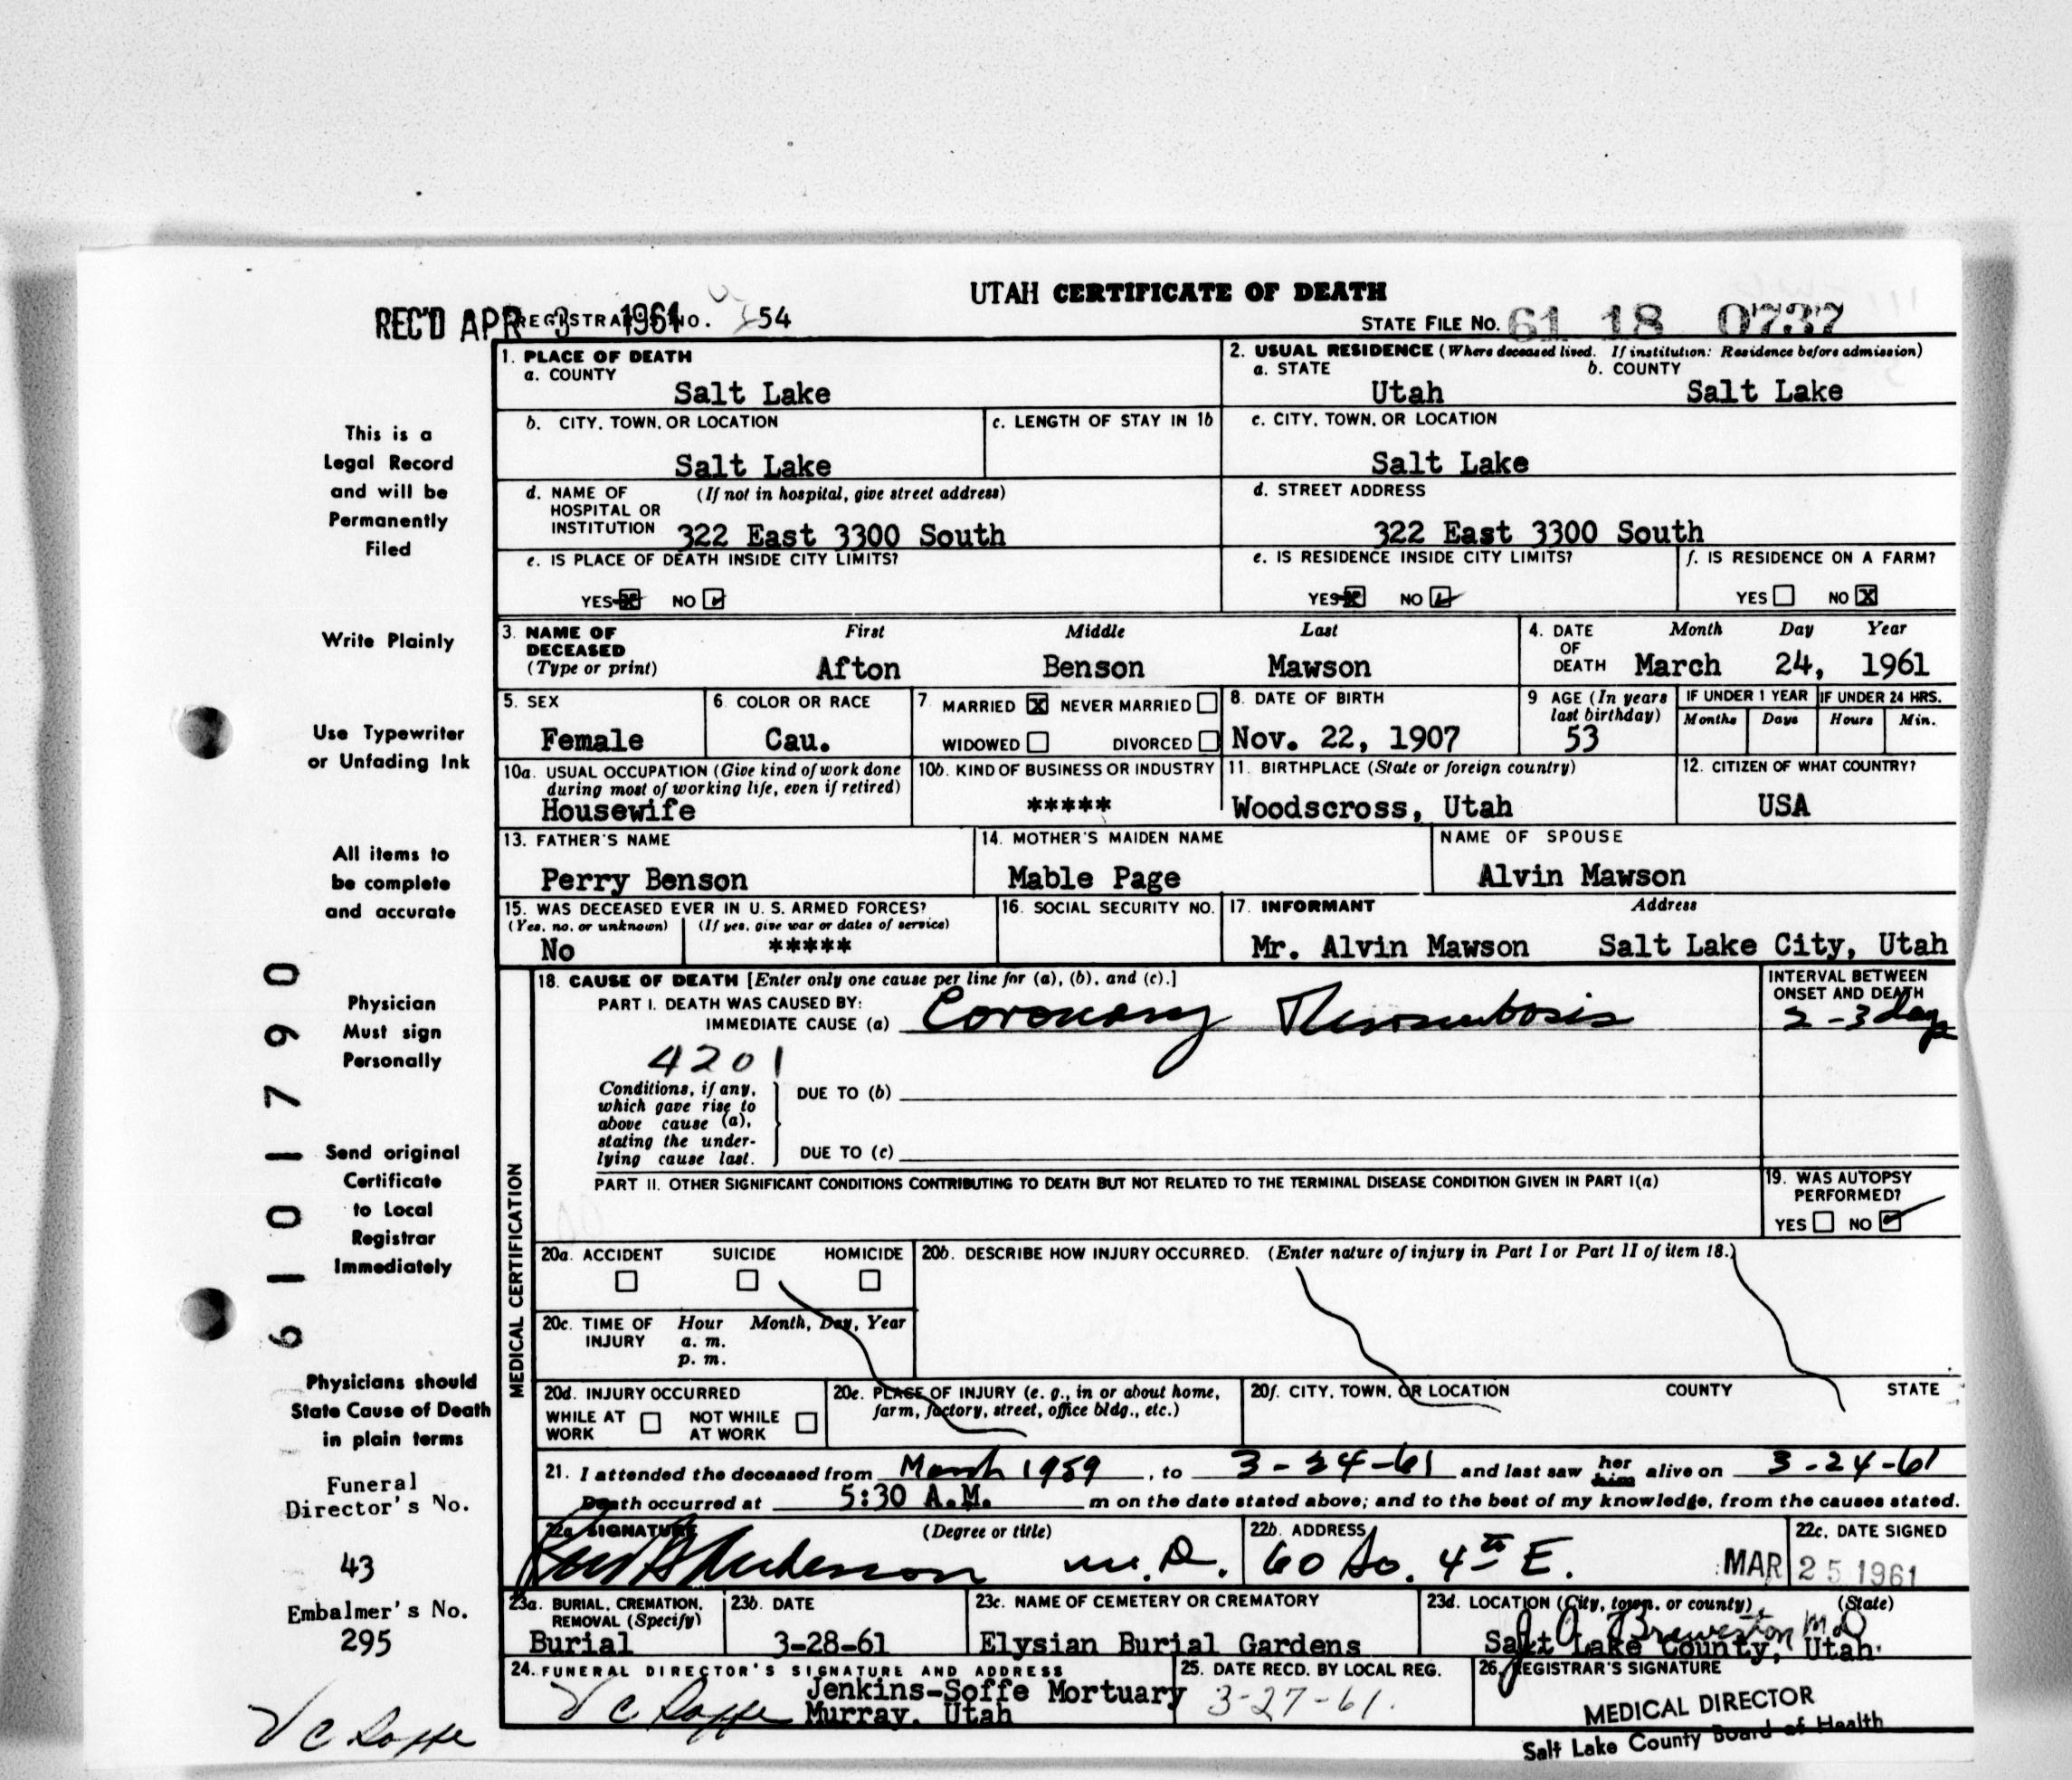 UTAH CERTIFICATE OF DEATH
REC'D APR 3 1961 REGISTRAR'S NO. 54
STATE FILE NO. 61 18 0737
1. PLACE OF DEATH
a. COUNTY
Salt Lake
2. USUAL RESIDENCE (Where deceased lived. If institution: Residence before admission)
a. STATE b. COUNTY
Utah Salt Lake
b. CITY, TOWN, OR LOCATION
Salt Lake
c. LENGTH OF STAY IN 1b
c. CITY, TOWN, OR LOCATION
Salt Lake
d. NAME OF (If not in hospital, give street address)
HOSPITAL OR
INSTITUTION 322 East 3300 South
d. STREET ADDRESS
322 East 3300 South
e. IS PLACE OF DEATH INSIDE CITY LIMITS?
YES X NO ✓
e. IS RESIDENCE INSIDE CITY LIMITS?
YES X NO ✓
f. IS RESIDENCE ON A FARM?
YES NO X
3. NAME OF DECEASED
(Type or print)
First Middle Last
Afton Benson Mawson
4. DATE OF DEATH
Month Day Year
March 24, 1961
5. SEX
Female
6. COLOR OR RACE
Cau.
7. MARRIED X NEVER MARRIED
WIDOWED DIVORCED
8. DATE OF BIRTH
Nov. 22, 1907
9 AGE (In years last birthday)
53
IF UNDER 1 YEAR
Months Days
IF UNDER 24 HRS.
Hours Min.
10a. USUAL OCCUPATION (Give kind of work done
during most of working life, even if retired)
Housewife
10b. KIND OF BUSINESS OR INDUSTRY
*****
11. BIRTHPLACE (State or foreign country)
Woodscross, Utah
12. CITIZEN OF WHAT COUNTRY?
USA
13. FATHER'S NAME
Perry Benson
14. MOTHER'S MAIDEN NAME
Mable Page
NAME OF SPOUSE
Alvin Mawson
15. WAS DECEASED EVER IN U. S. ARMED FORCES?
(Yes, no, or unknown) (If yes, give war or dates of service)
No *****
16. SOCIAL SECURITY NO.
17. INFORMANT Address
Mr. Alvin Mawson Salt Lake City, Utah
MEDICAL CERTIFICATION
18. CAUSE OF DEATH [Enter only one cause per line for (a), (b), and (c).]
PART I. DEATH WAS CAUSED BY:
IMMEDIATE CAUSE (a) Coronary Thrombosis
INTERVAL BETWEEN
ONSET AND DEATH
2-3 days
4201
Conditions, if any,
which gave rise to
above cause (a),
stating the under-
lying cause last.
DUE TO (b)
DUE TO (c)
PART II. OTHER SIGNIFICANT CONDITIONS CONTRIBUTING TO DEATH BUT NOT RELATED TO THE TERMINAL DISEASE CONDITION GIVEN IN PART I(a)
19. WAS AUTOPSY
PERFORMED?
YES NO ✓
20a. ACCIDENT SUICIDE HOMICIDE
20b. DESCRIBE HOW INJURY OCCURRED. (Enter nature of injury in Part I or Part II of item 18.)
20c. TIME OF INJURY
Hour Month, Day, Year
a. m.
p. m.
20d. INJURY OCCURRED
WHILE AT WORK NOT WHILE AT WORK
20e. PLACE OF INJURY (e. g., in or about home,
farm, factory, street, office bldg., etc.)
20f. CITY, TOWN, OR LOCATION COUNTY STATE
21. I attended the deceased from March 1959, to 3-24-61 and last saw her him alive on 3-24-61
Death occurred at 5:30 A.M. m on the date stated above; and to the best of my knowledge, from the causes stated.
22a SIGNATURE (Degree or title)
Anderson M.D.
22b. ADDRESS
60 So. 4th E.
22c. DATE SIGNED
MAR 25 1961
23a. BURIAL, CREMATION,
REMOVAL (Specify)
Burial
23b. DATE
3-28-61
23c. NAME OF CEMETERY OR CREMATORY
Elysian Burial Gardens
23d. LOCATION (City, town, or county) (State)
Salt Lake County, Utah
24. FUNERAL DIRECTOR'S SIGNATURE AND ADDRESS
V C Soffe Jenkins-Soffe Mortuary
Murray, Utah
25. DATE RECD. BY LOCAL REG.
3-27-61.
26. REGISTRAR'S SIGNATURE
M.D.
MEDICAL DIRECTOR
Salt Lake County Board of Health
This is a
Legal Record
and will be
Permanently
Filed
Write Plainly
Use Typewriter
or Unfading Ink
All items to
be complete
and accurate
Physician
Must sign
Personally
Send original
Certificate
to Local
Registrar
Immediately
Physicians should
State Cause of Death
in plain terms
Funeral
Director's No.
43
Embalmer's No.
295
V C Soffe
6101790